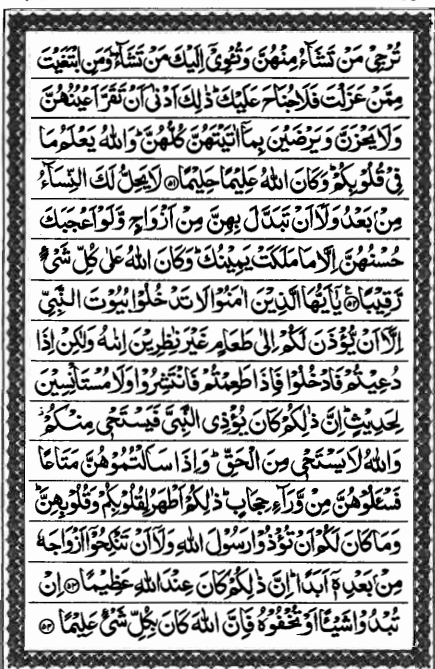 تُرْجِىْ مَنْ تَشَآءُ مِنْهُنَّ وَتُـْٔوِىْۤ اِلَيْكَ مَنْ تَشَآءُ ؕ وَمَنِ ابْتَغَيْتَ
مِمَّنْ عَزَلْتَ فَلَا جُنَاحَ عَلَيْكَ ؕ ذٰلِكَ اَدْنٰٓى اَنْ تَقَرَّ اَعْيُنُهُنَّ
وَلَا يَحْزَنَّ وَيَرْضَيْنَ بِمَاۤ اٰتَيْتَهُنَّ كُلُّهُنَّ ؕ وَاللّٰهُ يَعْلَمُ مَا
فِىْ قُلُوْبِكُمْ ؕ وَكَانَ اللّٰهُ عَلِيْمًا حَلِيْمًا ﴿۵۱﴾ لَا يَحِلُّ لَكَ النِّسَآءُ
مِنْۢ بَعْدُ وَلَاۤ اَنْ تَبَدَّلَ بِهِنَّ مِنْ اَزْوَاجٍ وَّلَوْ اَعْجَبَكَ
حُسْنُهُنَّ اِلَّا مَا مَلَكَتْ يَمِيْنُكَ ؕ وَكَانَ اللّٰهُ عَلٰى كُلِّ شَىْءٍ
رَّقِيْبًا ﴿۵۲﴾ يٰۤاَيُّهَا الَّذِيْنَ اٰمَنُوْا لَا تَدْخُلُوْا بُيُوْتَ النَّبِىِّ
اِلَّاۤ اَنْ يُّؤْذَنَ لَكُمْ اِلٰى طَعَامٍ غَيْرَ نٰظِرِيْنَ اِنٰىهُ وَلٰكِنْ اِذَا
دُعِيْتُمْ فَادْخُلُوْا فَاِذَا طَعِمْتُمْ فَانْتَشِرُوْا وَلَا مُسْتَاْنِسِيْنَ
لِحَدِيْثٍ ؕ اِنَّ ذٰلِكُمْ كَانَ يُؤْذِى النَّبِىَّ فَيَسْتَحْىٖ مِنْكُمْ
وَاللّٰهُ لَا يَسْتَحْىٖ مِنَ الْحَقِّ ؕ وَاِذَا سَاَلْتُمُوْهُنَّ مَتَاعًا
فَسْـَٔلُوْهُنَّ مِنْ وَّرَآءِ حِجَابٍ ؕ ذٰلِكُمْ اَطْهَرُ لِقُلُوْبِكُمْ وَقُلُوْبِهِنَّ ؕ
وَمَا كَانَ لَكُمْ اَنْ تُؤْذُوْا رَسُوْلَ اللّٰهِ وَلَاۤ اَنْ تَنْكِحُوْۤا اَزْوَاجَهٗ
مِنْۢ بَعْدِهٖۤ اَبَدًا ؕ اِنَّ ذٰلِكُمْ كَانَ عِنْدَ اللّٰهِ عَظِيْمًا ﴿۵۳﴾ اِنْ
تُبْدُوْا شَيْـًٔا اَوْ تُخْفُوْهُ فَاِنَّ اللّٰهَ كَانَ بِكُلِّ شَىْءٍ عَلِيْمًا ﴿۵۴﴾